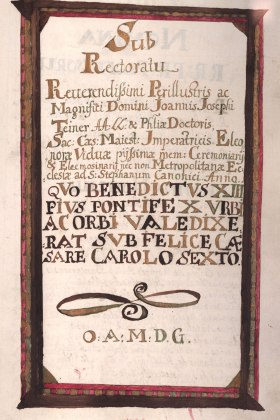 Sub
Rectoratu
Reverendissimi Perillustris ac
Magnifici Domini Joannis Josephi
Teiner AA: LL: & Phliæ Doctoris,
Sac: Cæs: Maiest: Imperatricis Eleo
noræ Viduæ piissimæ mem: Ceremoniarij
& Elecmosinarij nec non Metropolitanæ Ec
clesiæ ad S: Stephanum Canonici Anno
QUO BENEDICTUS XIII
PIUS PONTIFEX URBI
AC ORBI VALEDIXE
RAT SUB FELICE CÆ
SARE CAROLO SEXTO.
O: A: M: D: G.